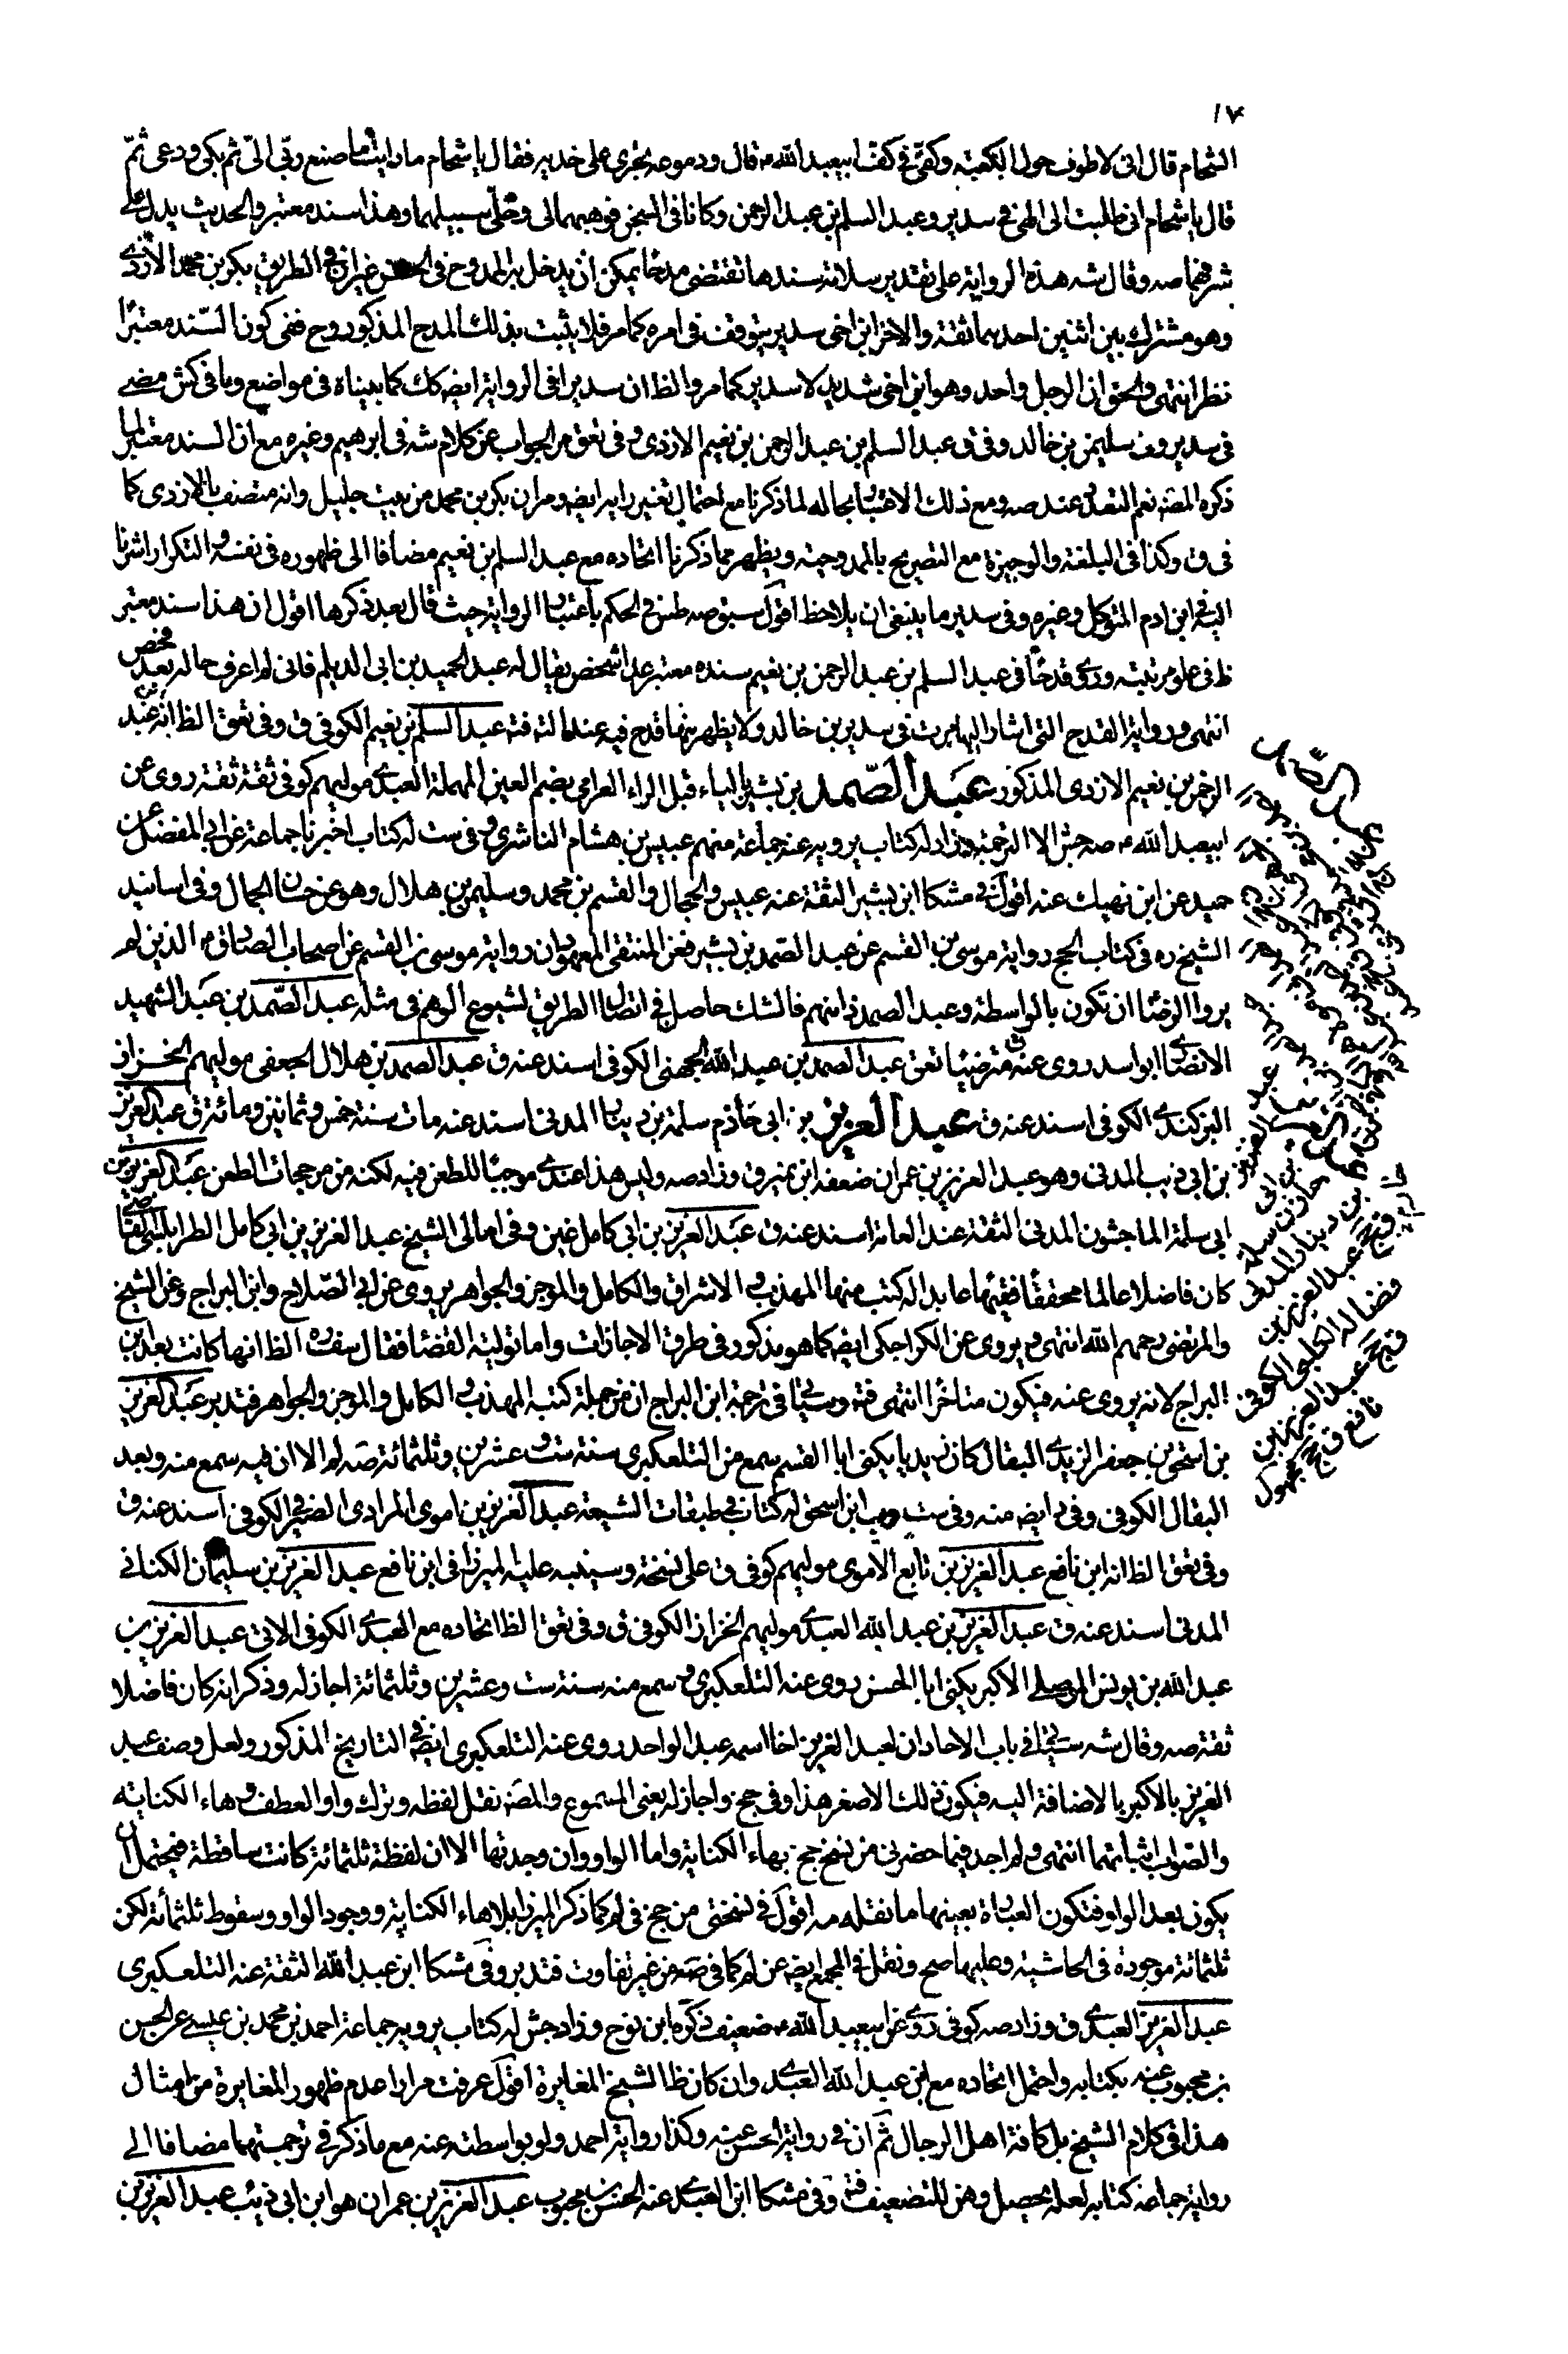 ١٧
الشحام قال انى لاطوف حول الكعبة وكفى فى كف ابيعبد الله ع قال ودموعه يجرى على خديه فقال يا شحام ما رايت ما صنع ربى الى ثم بكى ودعى ثم
قال يا شحام انى طلبت الى الهى فى سدير وعبد السلم بن عبد الرحمن وكانا فى السجن فوهبهما لى وخلى سبيلهما وهذا سند معتبر والحديث يدل على
شرفهما صه وقال شه هذه الرواية على تقدير سلامة سندها تقتضى مدحا يمكن ان يدخل به الممدوح فى الحسن غير ان فى الطريق بكر بن محمد الازدى
وهو مشترك بين اثنين احدهما ثقة والاخر ابن اخى سدير يتوقف فى امره كما مر فلا يثبت بذلك المدح المذكور وح ففى كون السند معتبرا
نظر انتهى والحق ان الرجل واحد وهو ابن اخى شديد لا سدير كما مر والظ ان سديرا فى الرواية ايضه كك كما بيناه فى مواضع وما فى كش مضى
فى سدير وفى سليمن بن خالد وفى ق عبد السلم بن عبد الرحمن بن نعيم الازدى وفى تعق مر الجواب عن كلام شه فى ابرهيم وغيره مع ان السند معتبر لما
ذكره المصه نعم التعدد عند صه ومع ذلك الاعتبار بحاله لما ذكرنا مع احتمال تغير رايه ايضه ومر ان بكر بن محمد من بيت جليل وانه متصف بالازدى كما
فى ق وكذا فى البلغة والوجيزة مع التصريح بالممدوحية ويظهر مما ذكرنا اتحاده مع عبد السلم بن نعيم مضافا الى ظهوره فى نفسه والتكرار اشرنا
اليه فى ابن ادم المتوكل وغيره وفى سدير ما ينبغى ان يلاحظ اقول سبق صه طس فى الحكم باعتبار الرواية حيث قال بعد ذكرها اقول ان هذا سند معتبر
ظ فى علو مرتبته وروى قدحا فى عبد السلم بن عبد الرحمن بن نعيم سنده معتبر عدا شخص يقال له عبد الحميد بن ابى الديلم فانى لم اعرف حاله بعد فحص
انتهى ورواية القدح التى اشار اليها مرت فى سدير بن خالد ولا يظهر منها قدح فيه عندنا فته عبد السلم بن نعيم الكوفى ق وفى تعق الظ انه عبد
الرحمن بن نعيم الازدى المذكور عبد الصمد بن بشير بالياء قبل الراء العرامى بضم العين المهملة العبدى موليهم كوفى ثقة ثقة روى عن
ابيعبد الله ع صه جش الا الترجمة وزاد له كتاب يرويه عنه جماعة منهم عبيس بن هشام الناشرى وفى ست له كتاب اخبرنا جماعة عن ابى المفضل عن
حميد عن ابن نهيك عنه اقول فى مشكا ابن بشير الثقة عنه عبيس والحجال والقسم بن محمد وسليمن بن هلال وهو عن حسان الجمال وفى اسانيد
الشيخ ره فى كتاب الحج رواية موسى بن القسم عن عبد الصمد بن بشير ففى المنتقى المعهود ان رواية موسى بن القسم عن اصحاب الصادق ع الذين لم
يرووا الرضا ان تكون بالواسطة وعبد الصمد منهم فالشك حاصل فى اتصال الطريق لشيوع الوهم فى مثله عبد الصمد بن عبد الشهيد
الانصارى ابو اسد روى عنه مترضيا تعق عبد الصمد بن عبيد الله الجهنى الكوفى اسند عنه ق عبد الصمد بن هلال الجعفى موليهم الخزاز
البركندى الكوفى اسند عنه ق عبد العزيز بن ابى حازم سلمة بن دينار المدنى اسند عنه مات سنة خمس وثمانين ومائة ق عبد العزيز
بن ابى ذيب المدنى وهو عبد العزيز بن عمران ضعفه ابن نمير ق وزاد صه وليس هذا عندى موجبا للطعن فيه لكنه من مرجحات الطعن عبد العزيز بن
ابى سلمة الماجشون المدنى الثقة عند العامة اسند عنه ق عبد العزيز بن ابى كامل غين وفى امالى الشيخ عبد العزيز بن ابى كامل الطرابلسى القاضى
كان فاضلا عالما محققا فقيها عابدا له كتب منها المهذب و الاشراق والكامل والموجز والجواهر يروى عن ابى الصلاح وابن البراج وعن الشيخ
والمرتضى رحمهم الله انتهى ويروى عن الكراجكى ايضه كما هو مذكور فى طرق الاجازات واما توليته القضا فقال الظ انها كانت بعد ابن
البراج لانه يروى عنه فيكون متاخرا انتهى فته وسياتى فى ترجمة ابن البراج ان من جملة كتبه المهذب و الكامل والموجز والجواهر فتدبر عبد العزيز
بن اسحق بن جعفر الزيدى البقال كان زيديا يكنى ابا القسم سمع منه التلعكبرى سنة ست وعشرين وثلثمائة صه لم الا ان فيه سمع منه وبعد
البقال الكوفى وفى د ايضه منه وفى ست وب ابن اسحق له كتاب فى طبقات الشيعة عبد العزيز بن اموى المرادى الصيرفى الكوفى اسند عنه ق
وفى تعق الظ انه ابن نافع عبد العزيز بن تابع الاموى موليهم كوفى ق على نسخة وسينبه عليه الميرزا فى ابن نافع عبد العزيز بن سليمان الكنانى
المدنى اسند عنه ق عبد العزيز بن عبد الله العبدى موليهم الخزاز الكوفى ق وفى تعق الظ اتحاده مع العبدى الكوفى الاتى عبد العزيز بن
عبد الله بن يونس الموصلى الاكبر يكنى ابا الحسن روى عنه التلعكبرى و سمع منه سنة ست وعشرين وثلثمائة اجاز له وذكر انه كان فاضلا
ثقة صه وقال شه سياتى فى باب الاحاد ان لعبد العزيز اخا اسمه عبد الواحد روى عنه التلعكبرى ايضه فى التاريخ المذكور ولعل وصف عبد
العزيز بالاكبر بالاضافة اليه فيكون ذلك الاصغر هذا وفى جخ واجاز له يعنى المسموع والمصه نقل لفظه وترك واو العطف وهاء الكناية
والصواب اثباتهما انتهى ولم اجد فيما حضرنى من نسخ جخ بهاء الكناية واما الواو وان وجدتها الا ان لفظة ثلثمائة كانت ساقطة فيحتمل ان
يكون بعد الواو فتكون العبارة بعينها ما نقله صه اقول فى نسختى من جخ فى لم كما ذكر الميرزا بلا هاء الكناية ووجود الواو وسقوط ثلثمائة لكن
ثلثمائة موجودة فى الحاشية وعليها صح ونقل فى المجمع ايضه عن لم كما فى صه من غير تفاوت فتدبر وفى مشكا ابن عبد الله الثقة عنه التلعكبرى
عبد العزيز العبدى ق وزاد صه كوفى روى عن ابيعبد الله ع ضعيف ذكره ابن نوح وزاد جش له كتاب يرويه جماعة احمد بن محمد بن عيسى عن الحسن
بن محبوب عنه بكتابه واحتمل اتحاده مع ابن عبد الله العبدى وان كان ظ الشيخ المغايرة اقول عرفت مرارا عدم ظهور المغايرة من امثال
هذا فى كلام الشيخ بل كافة اهل الرجال ثم ان فى رواية الحسن عنه وكذا رواية احمد ولو بواسطته عنه مع ما ذكر فى ترجمتهما مضافا الى
رواية جماعة كتابه لعله يحصل وهن للتضعيف فته وفى مشكا ابن العبدى عنه الحسن بن محبوب عبد العزيز بن عمران هو ابن ابى ذئب عبد العزيز بن
عبد العزيز
بن ابى
حازم سلمة
بن دينار المدنى
ق مج عبد العزيز بن
فضالة الكوفى
ق مج عبد العزيز بن
نافع ق مج مجهول